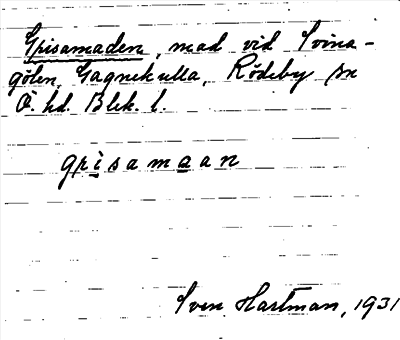 Grisamaden, mad vid Svina-
gölen, Gagnekulla, Rödeby sn
Ö. hd. Blek. l.
gri̲sama̲an
Sven Hartman, 1931